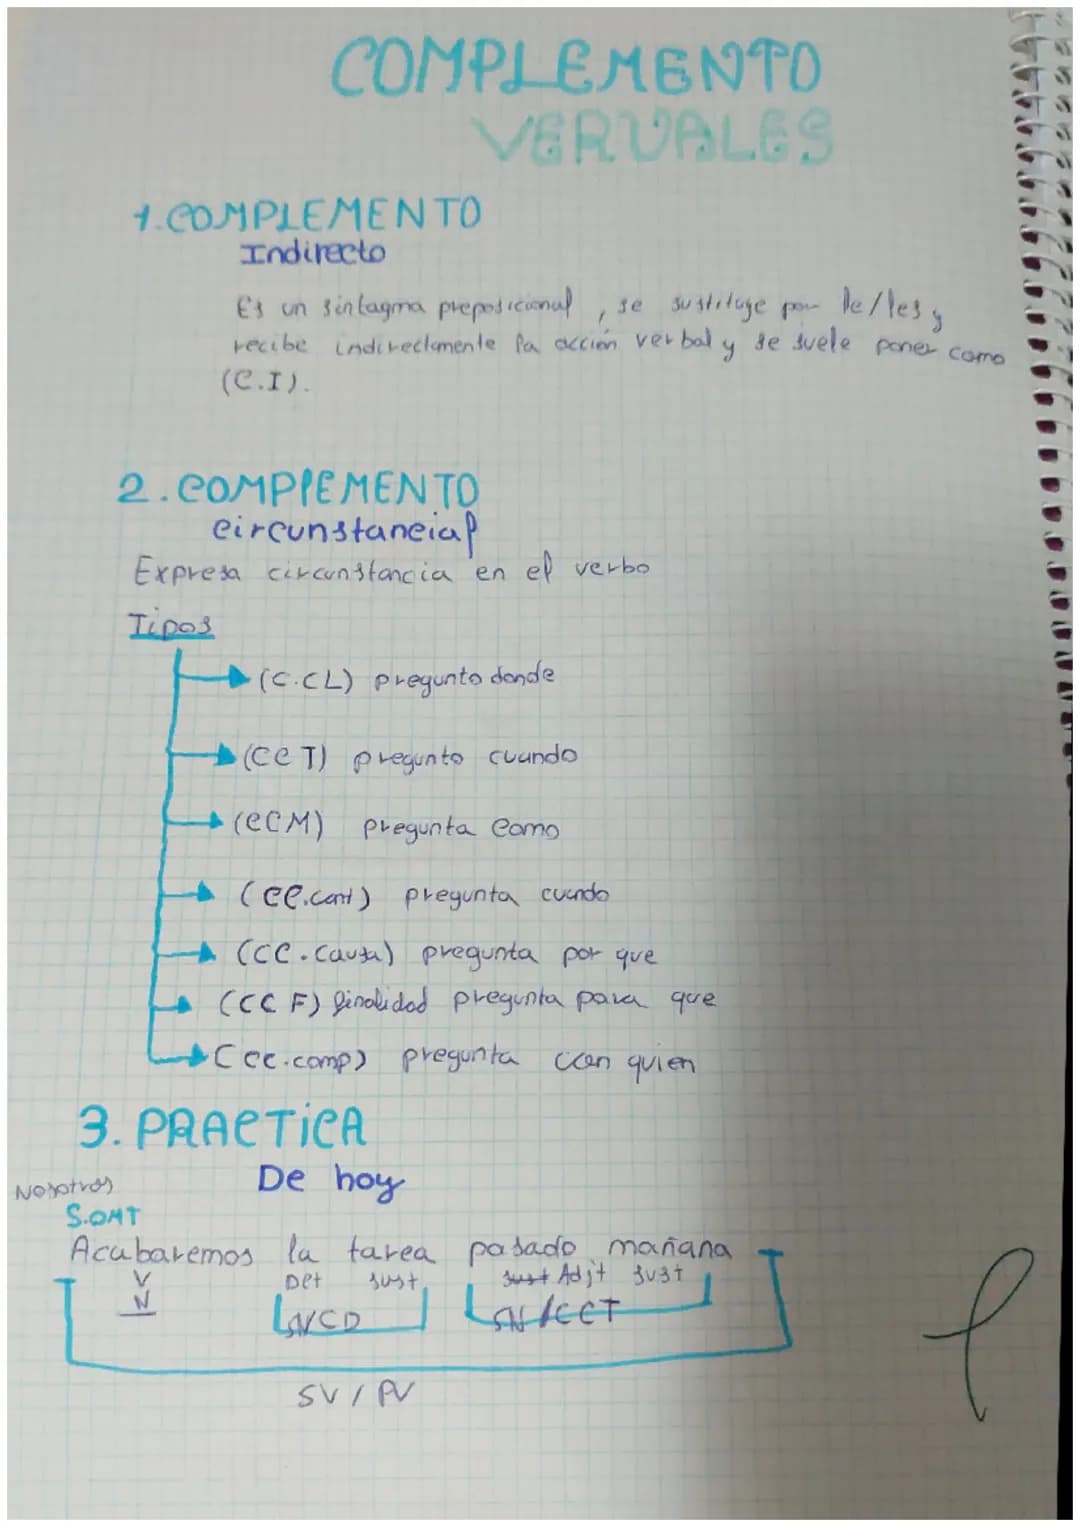 COMPLEMENTO
VERVALES
1.COMPLEMENTO
Indirecto
Es un sintagma preposicional, se sustituye por le/les y
recibe indirectamente la acción verbal y se suele poner como
(C.I).
2.COMPLEMENTO
circunstancial
Expresa circunstancia en el verbo
Tipos
(C.CL) pregunto donde
(CCT) pregunto cuando
(CCM) pregunta como
(CC.cant) pregunta cuando
(CC.causa) pregunta por que
(CCF) finalidad pregunta para que
(CC.comp) pregunta con quien
3. PRACTICA
De hoy
Nosotros
S.OMT
Acabaremos la tarea pasado mañana
V Det sust sust Adjt sust
N SN/CD SN/CCT
SV/PV